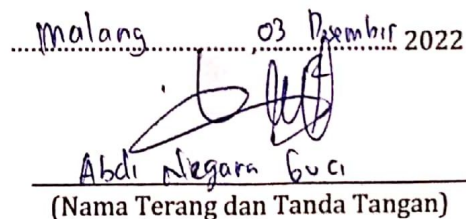 Malang, 03 Desember 2022
Abdi Negara Guci
(Nama Terang dan Tanda Tangan)